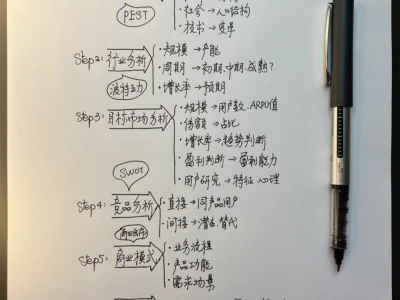 PEST
· 社会 → 人口结构
· 技术 → 变革
Step2: 行业分析
波特五力
· 规模 → 产能
· 周期 → 初期、中期、成熟?
· 增长率 → 预期
Step3: 目标市场分析
· 规模 → 用户数、ARPU值
· 份额 → 占比
· 增长率 → 趋势判断
· 盈利判断 → 盈利能力
· 用户研究 → 特征 心理
SWOT
Step4: 竞品分析
· 直接 → 同产品用户
· 间接 → 潜在、替代
Step5: 商业模式
· 业务流程
· 产品功能
· 需求场景